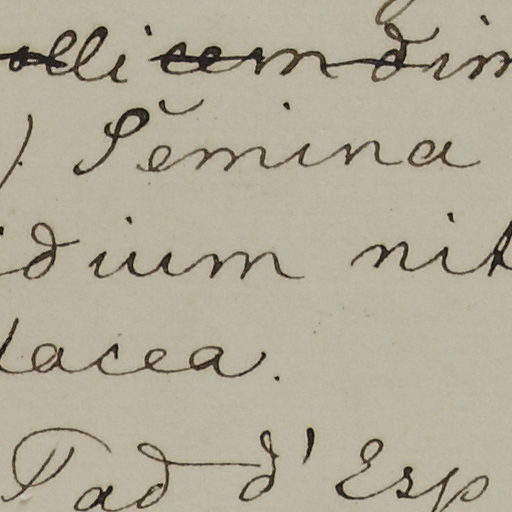 olli cum dim
). Semina
idium nit
lacea.
Tad d'Esp